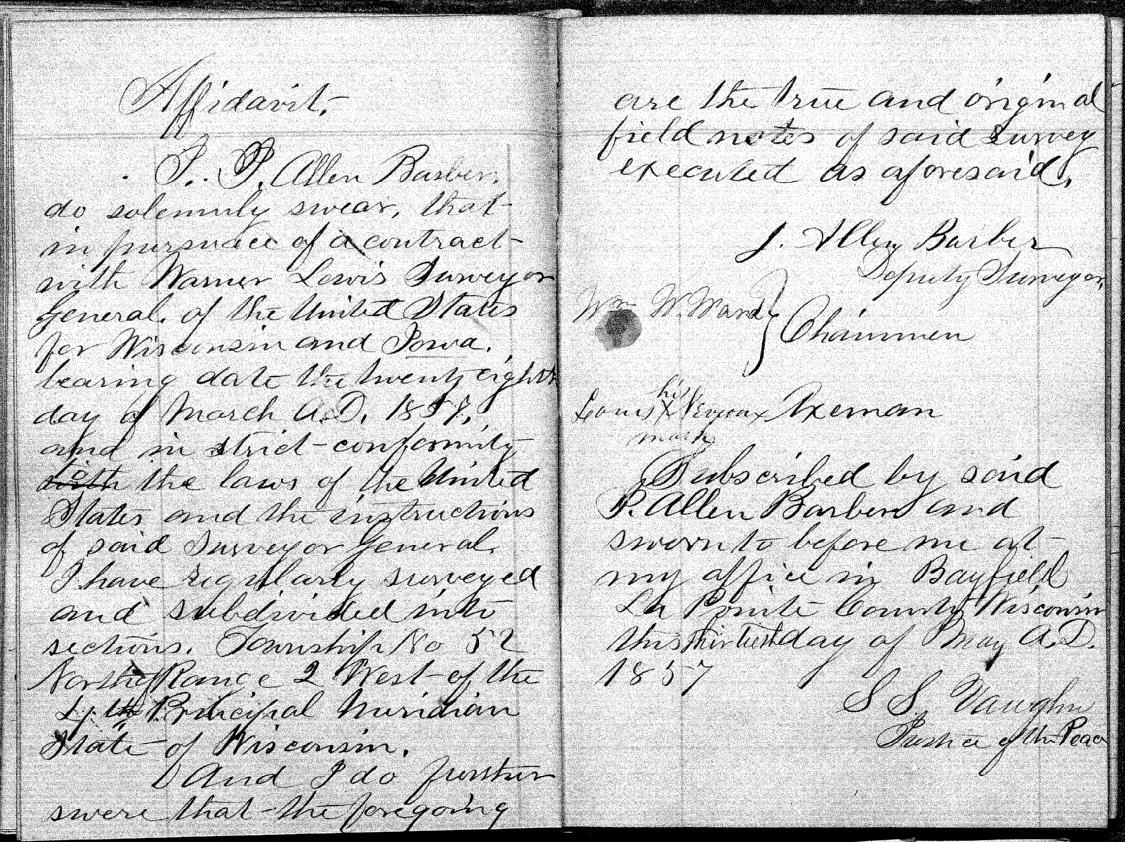 Affidavit.
I. P. Allen Barber,
do solemnly swear, that
in pursuace of a contract
with Warner Lewis Surveyor
General. of the United States
for Wisconsin and Iowa.
bearing date the twenty eighth
day of March A.D. 1857,
and in strict conformity
with the laws of the United
States and the instructions
of said Surveyor General,
I have regularly surveyed
and subdivided into
sections. Township No 52
North of Range 2 West of the
4th Principal Meridian
State of Wisconsin.
And I do further
swere that the foregoing
are the true and original
field notes of said survey
executed as aforesaid,
J. Allen Barber
Deputy Surveyor,
Wm W. Ward } Chainmen
Louis his X mark Axeman
Subscribed by said
P. Allen Barber and
sworn to before me at
my office in Bayfield
La Pointe County Wisconsin
this day of May A.D.
1857
S S Vaughn
Justice of the Peace